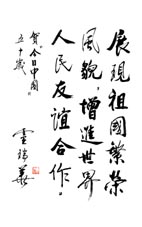 展現祖國繁榮
風貌，增進世界
人民友誼合作。
賀《今日中國》
五十歲